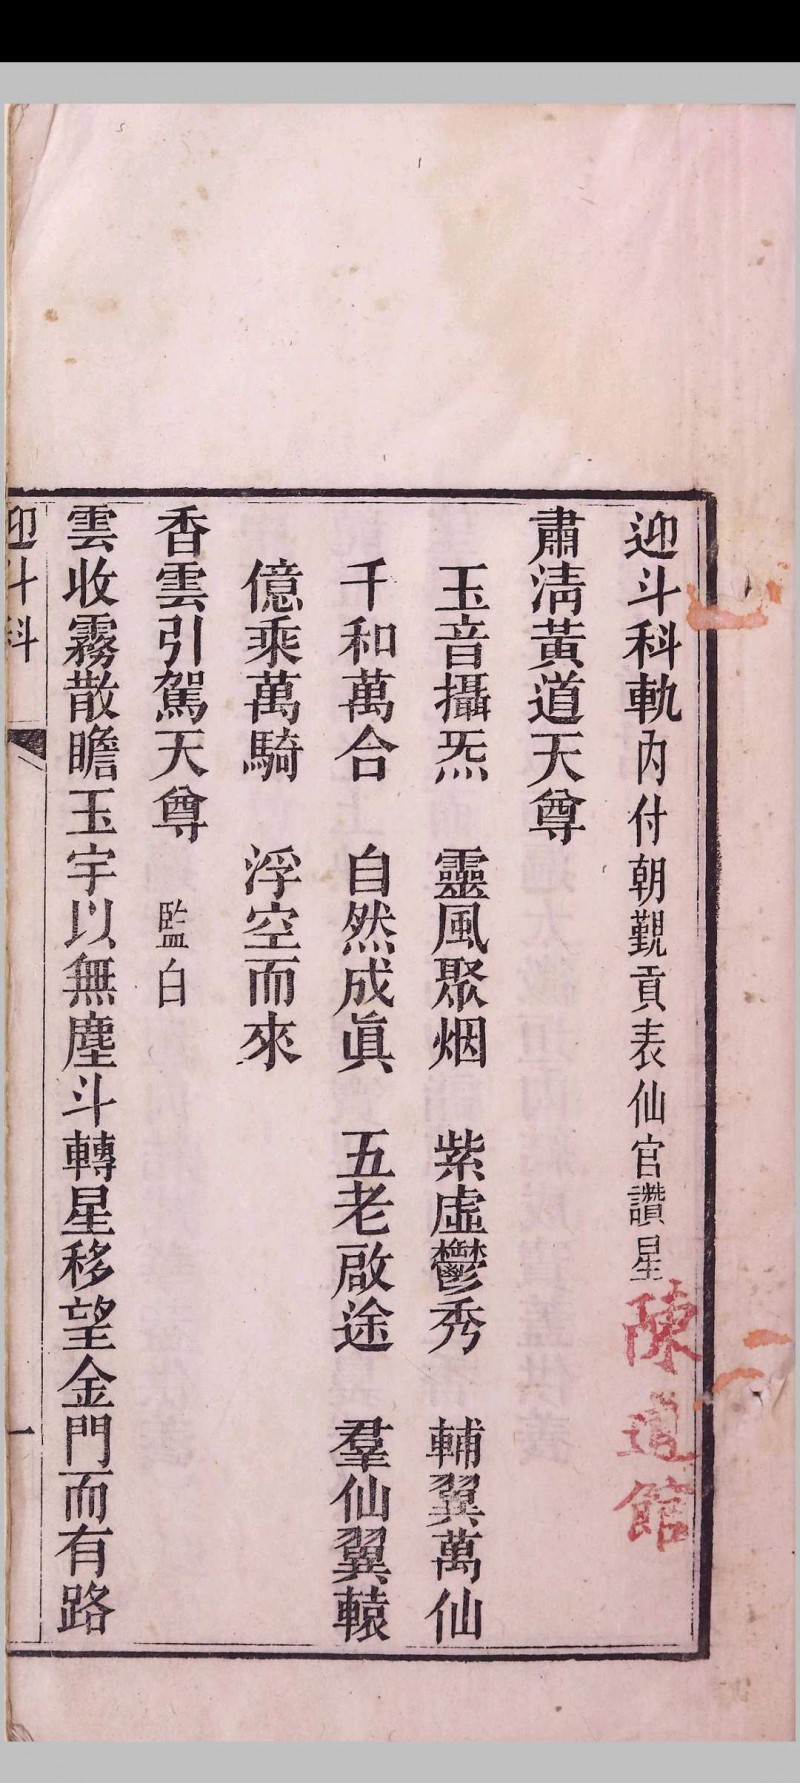 迎斗科軌內付朝覲貢表仙官讚星
陳道館
肅清黃道天尊
玉音攝炁　靈風聚烟　紫虛鬱秀　輔翼萬仙
千和萬合　自然成眞　五老啟途　羣仙翼轅
億乘萬騎　浮空而來
香雲引駕天尊　監白
雲收霧散瞻玉宇以無塵斗轉星移望金門而有路
迎斗科
一